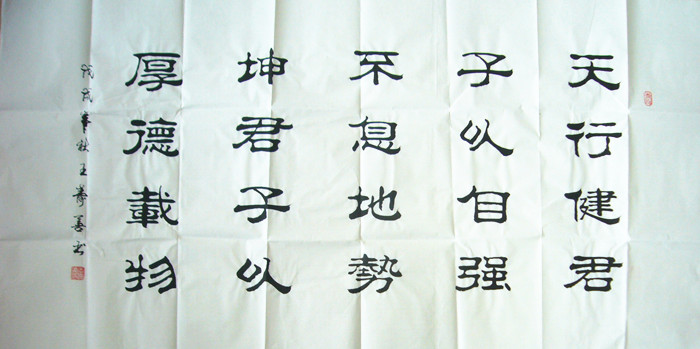 天行健君
子以自强
不息地勢
坤君子以
厚德載物
戊戌秋王善书